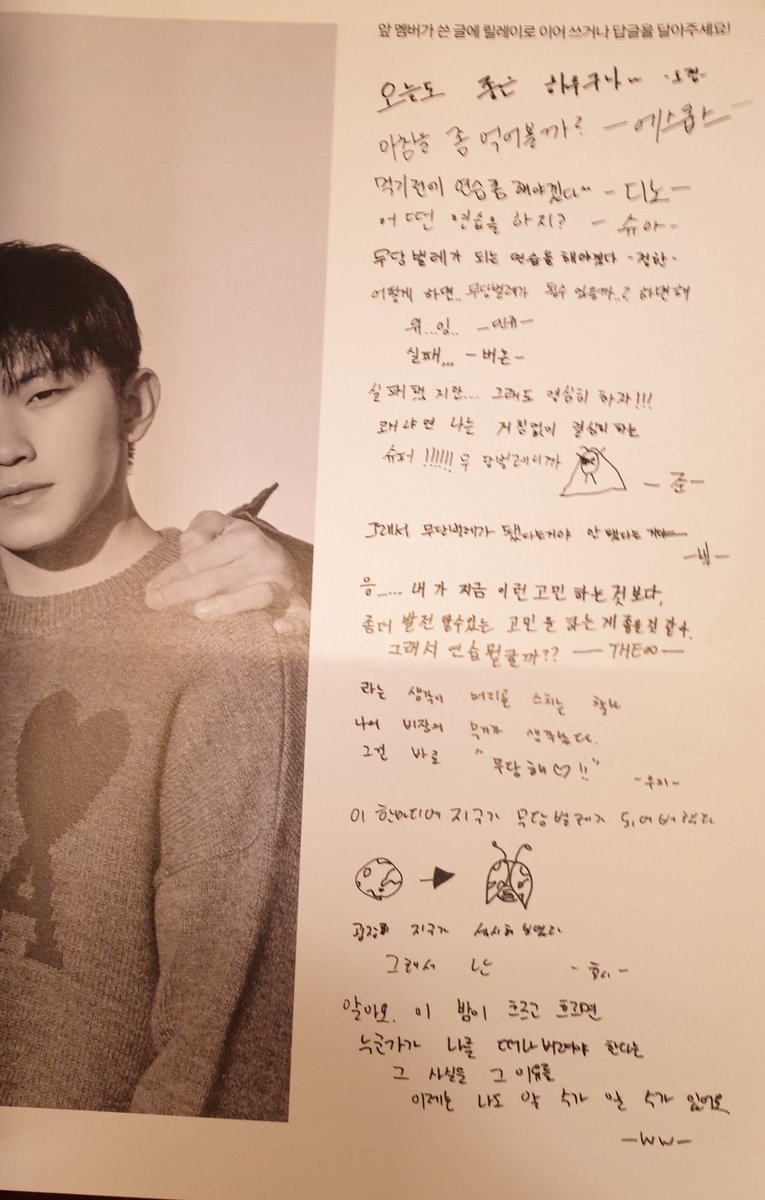 앞 멤버가 쓴 글에 릴레이로 이어 쓰거나 답글을 달아주세요!
오늘도 좋은 하루구나~ -도겸-
아침을 좀 먹어볼까? -에스쿱스-
먹기전에 연습좀 해야겠다~ -디노-
어떤 연습을 하지? -슈아-
무당벌레가 되는 연습을 해야겠다 -정한-
어떻게 하면.. 무당벌레가 될수 있을까..? 하면 해
위..잉.. -민규-
실패... -버논-
실패했지만... 그래도 열심히 하자!!!
왜냐면 나는 거침없이 열심히 하는
슈퍼 !!!!!! 무당벌레이까
-준-
그래서 무당벌레가 됐다는거야 안 됐다는 거야
응..... 내가 지금 이런 고민 하는 것보다,
좀더 발전 할수있는 고민을 하는 게 좋을 것 같아.
그래서 연습뭘할까?? -THE8-
라는 생각이 머리를 스치는 찰나
나의 비장의 무기가 생각났다.
그건 바로 "무당해♡!!"
-우지-
이 한마디에 지구가 무당벌레가 되어버렸다
굉장히 지구가 섹시해 보였다
그래서 난 -호시-
알아요. 이 밤이 흐르고 흐르면
누군가가 나를 떠나버려야 한다는
그 사실을 그 이유를
이제는 나도 알 수가 알 수가 있어요
-WW-
A